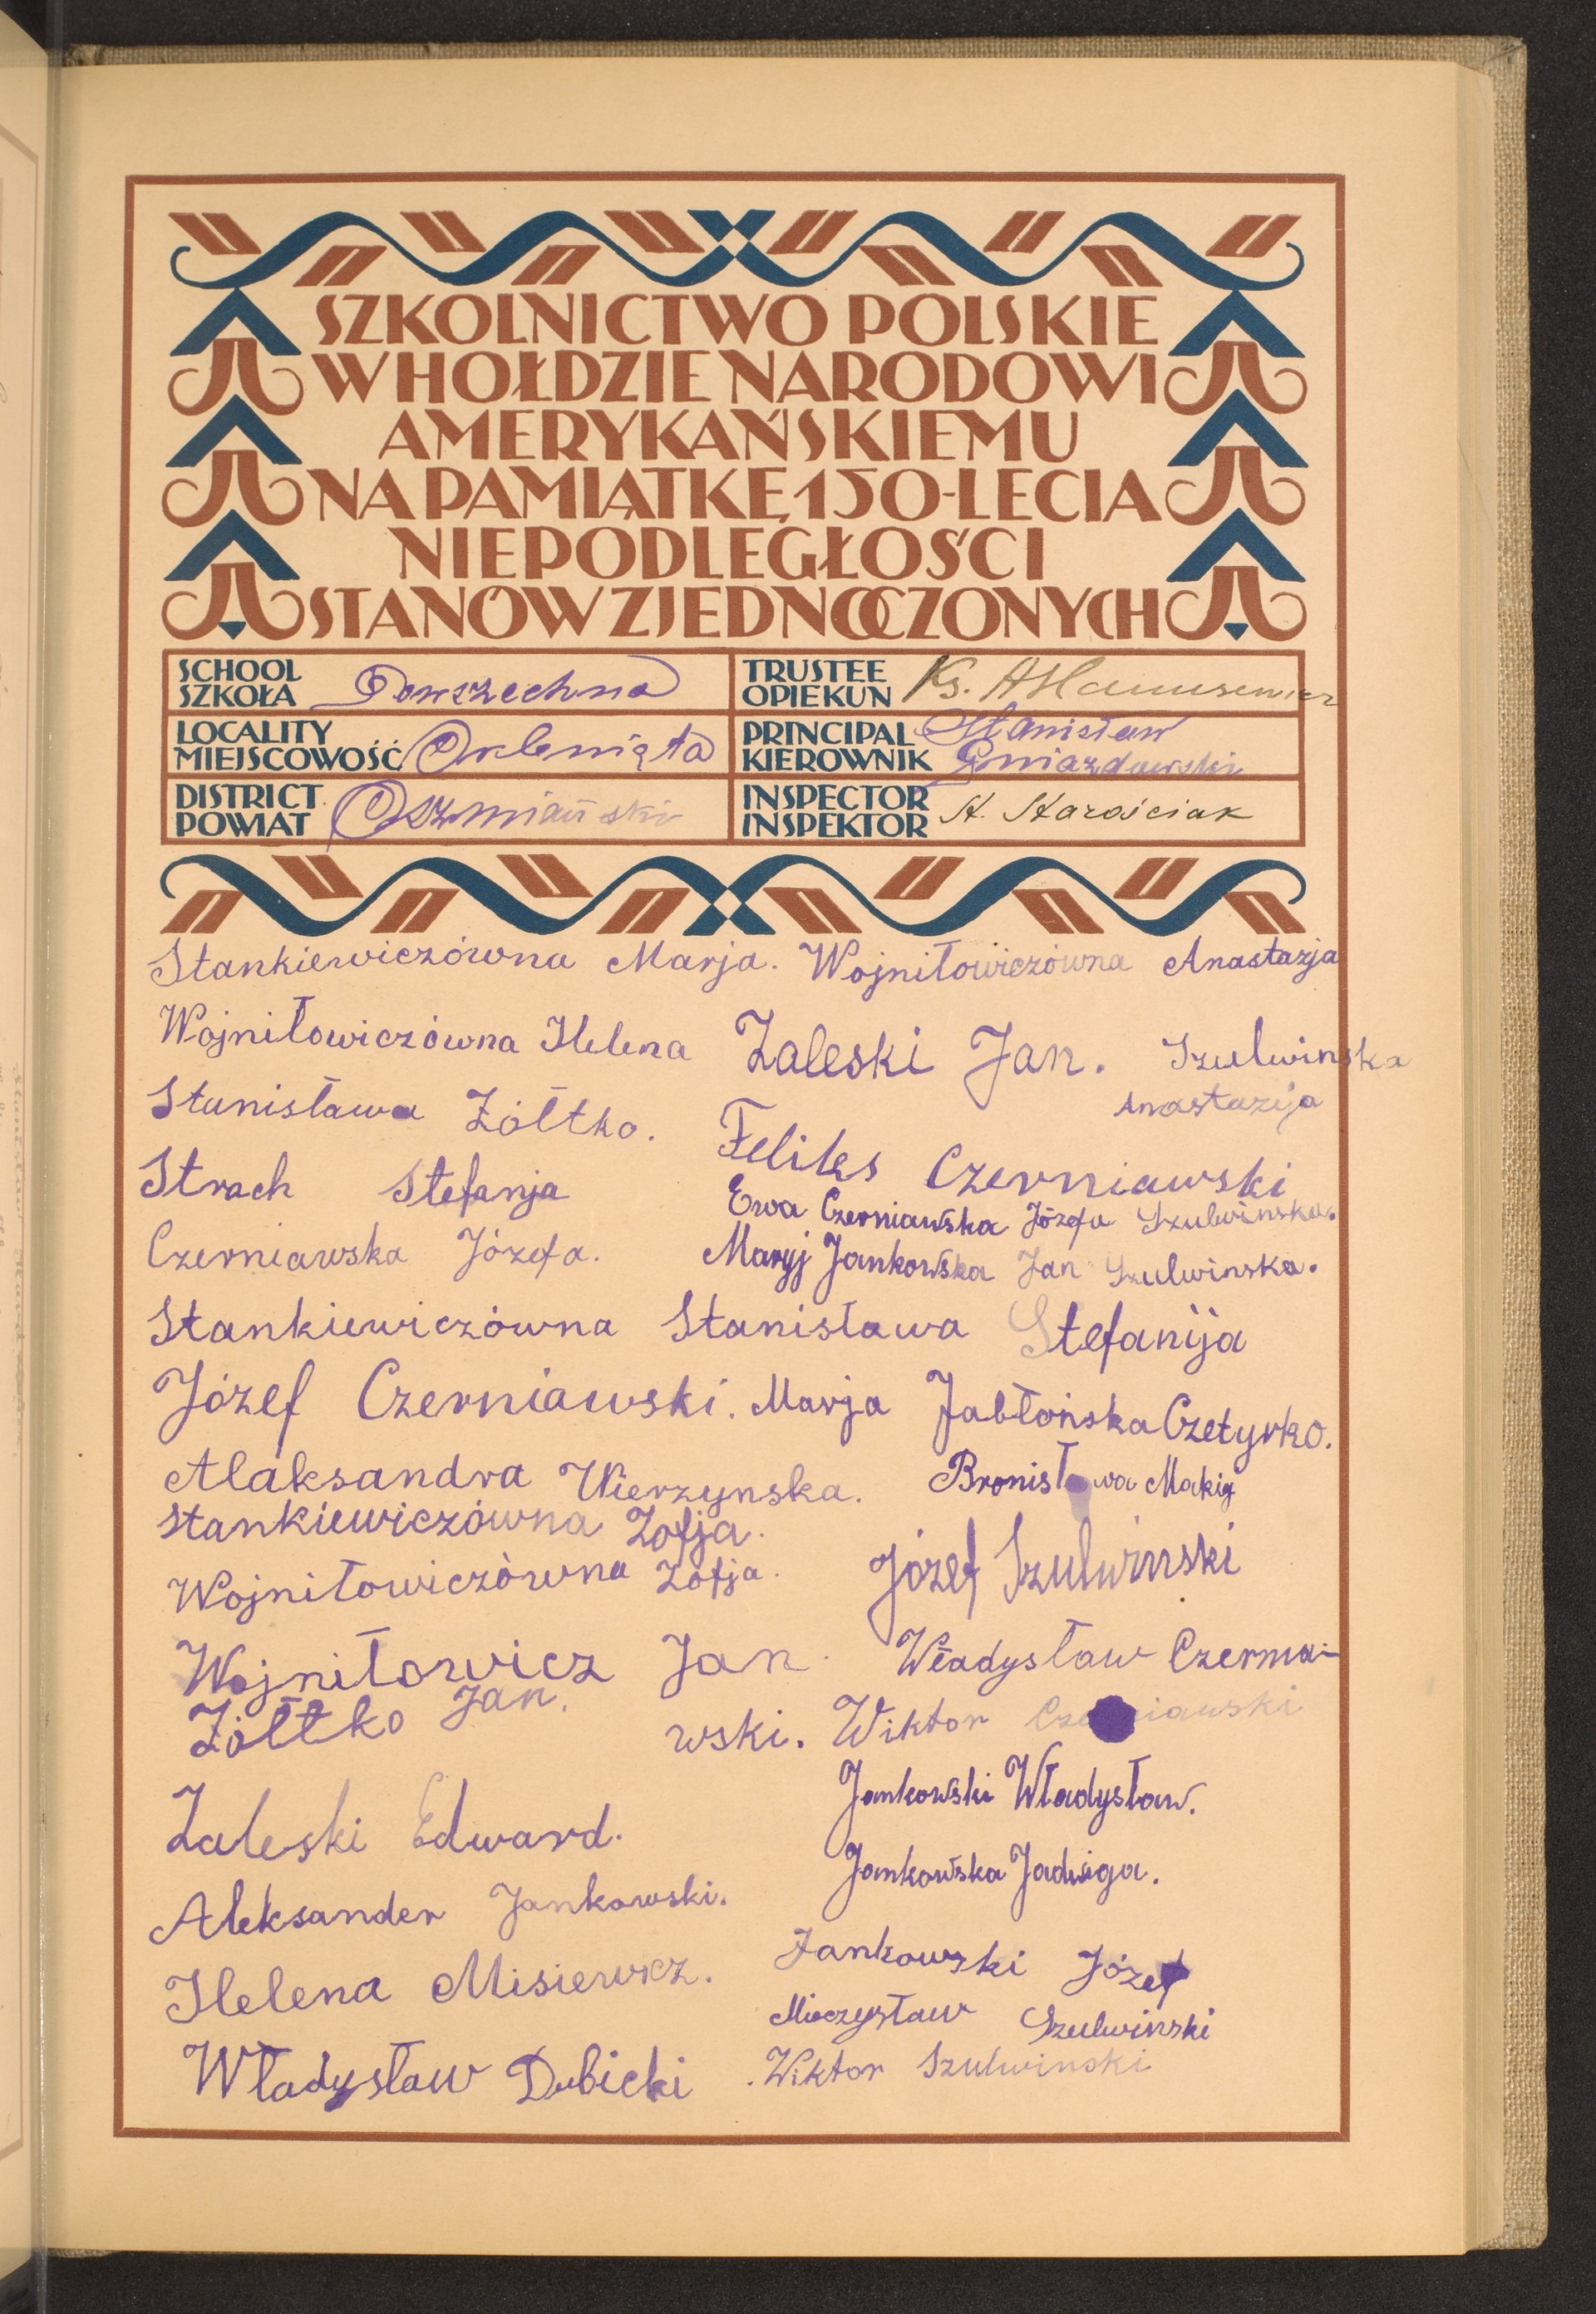 SZKOLNICTWO POLSKIE
W HOŁDZIE NARODOWI
AMERYKAŃSKIEMU
NA PAMIĄTKĘ 150-LECIA
NIEPODLEGŁOŚCI
STANÓW ZJEDNOCZONYCH
SCHOOL
SZKOŁA Powszechna
TRUSTEE
OPIEKUN Ks. A Hanusewicz
LOCALITY
MIEJSCOWOŚĆ
PRINCIPAL Stanisław
KIEROWNIK Gniazdowski
DISTRICT
POWIAT Oszmiański
INSPECTOR
INSPEKTOR St. Starościak
Stankiewiczówna Marja. Wojniłowiczówna Anastazja
Wojniłowiczówna Helena Zaleski Jan. Szulwinska
Anastazija
Stanisława Żółtko.
Feliks Czerniawski
Strach Stefanja
Ewa Czerniawska Józefa Szulwinska.
Czerniawska Józefa.
Maryj Jankowska Jan Szulwinska.
Stankiewiczówna Stanisława Stefanija
Józef Czerniawski. Marja Jabłońska Czetyrko.
Alaksandra Wierzynska. Bronisława Makig
Stankiewiczówna Zofja.
Wojniłowiczówna Zofja. Józef Szulwinski
Wojniłowicz Jan. Władysław Czerma-
Żółtko Jan. wski. Wiktor Czerniawski
Jankowski Władysław.
Zaleski Edward.
Jankowska Jadwiga.
Aleksander Jankowski.
Jankowski Józef
Helena Misiewicz.
Mieczysław Szulwinski
Władysław Dubicki .Wiktor Szulwinski